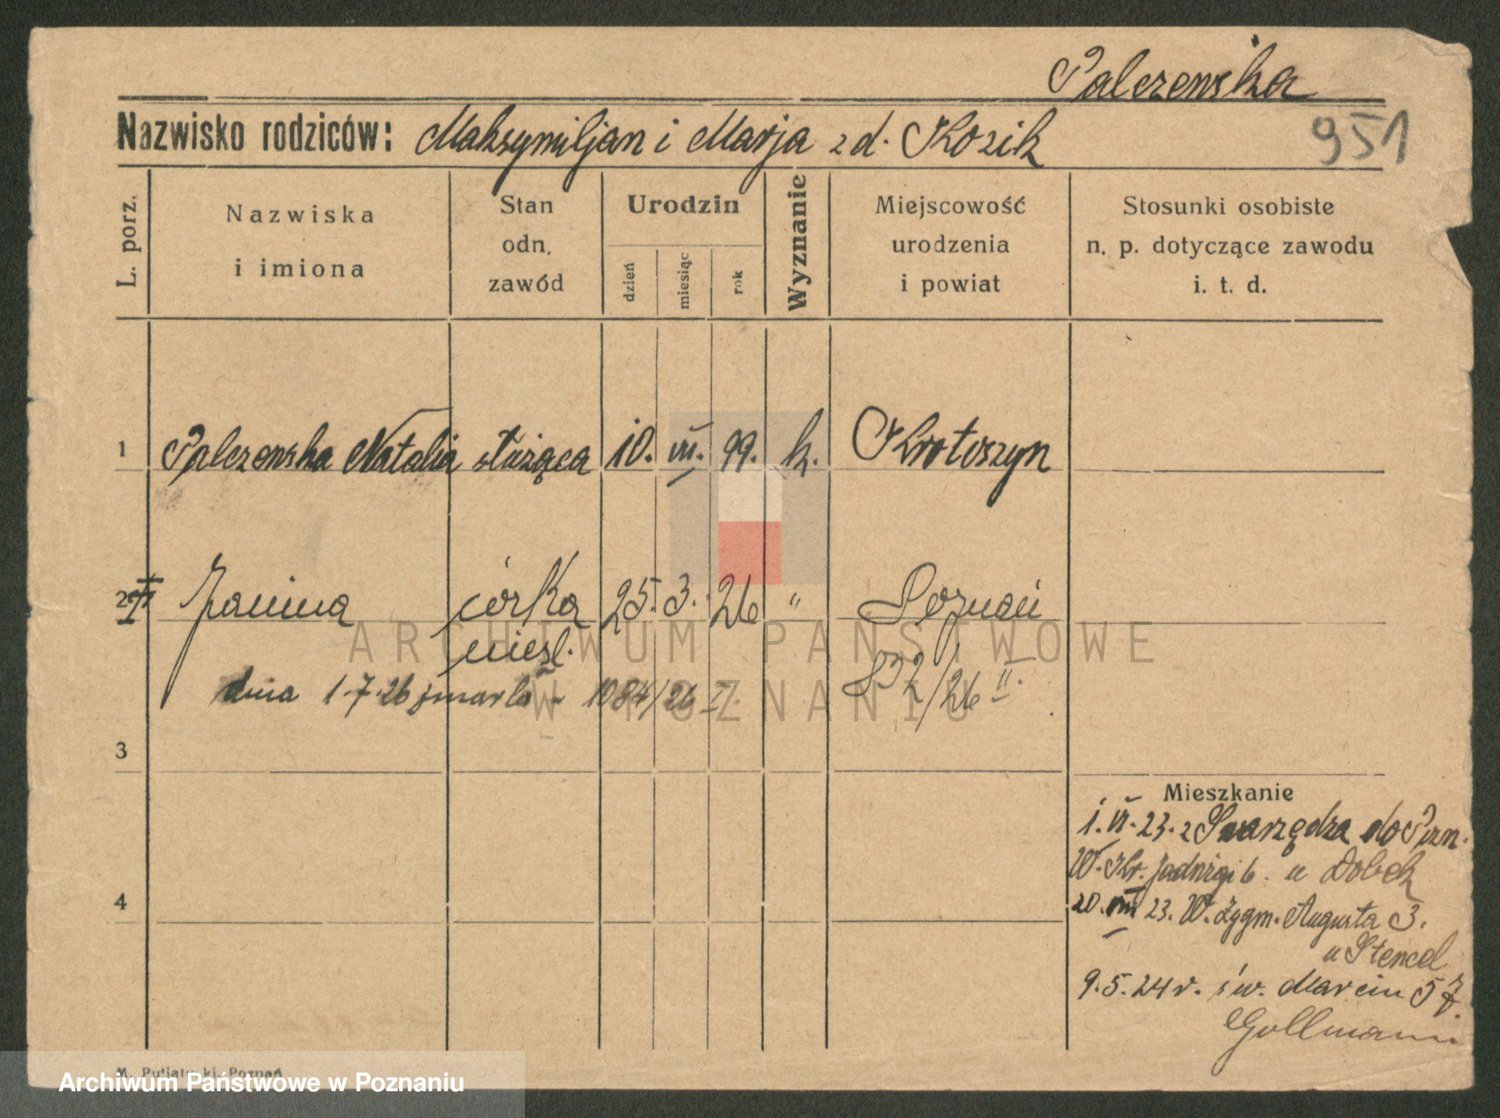 Palczewska
Nazwisko rodziców: Maksymiljan i Marja z d. Kozik 951
L. porz.
Nazwiska
i imiona
Stan
odn.
zawód
Urodzin
dzień
miesiąc
rok
Wyznanie
Miejscowość
urodzenia
i powiat
Stosunki osobiste
n. p. dotyczące zawodu
i. t. d.
1 Palczewska Natalia służąca 10. VII. 99. k. Krotoszyn
2 Janina córka 25. 3. 26 " Poznań
nieśl. 832/26 II
dnia 1.7.26 zmarła - 1084/26 I.
3
4
Mieszkanie
1. VI. 23. z Swarzędza do Pozn.
W. Kr. Jadwigi 6. u Dobek
20. VIII 23. W. Zygm. Augusta 3.
u Stencel
9.5.24 r. św. Marcin 57.
Gollmann
M. Putiatycki, Poznań
ARCHIWUM PAŃSTWOWE
W POZNANIU
Archiwum Państwowe w Poznaniu